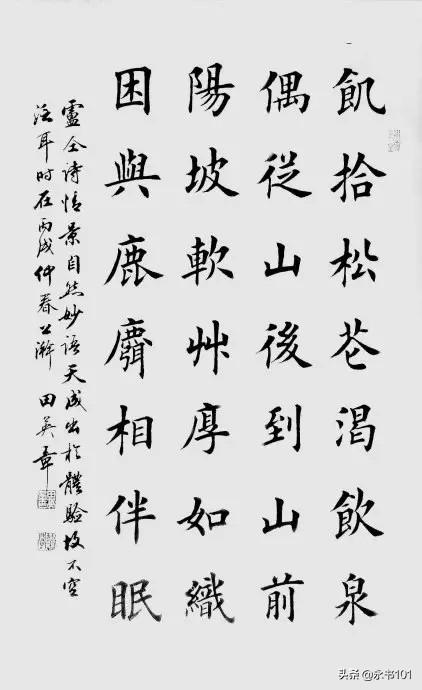 飢拾松花渴飲泉
偶從山後到山前
陽坡軟艸厚如織
困與鹿麛相伴眠
盧仝诗情景自然妙语天成出於體驗故不空
泛耳时在丙戌仲春公瀚 田英章
头条@永书101